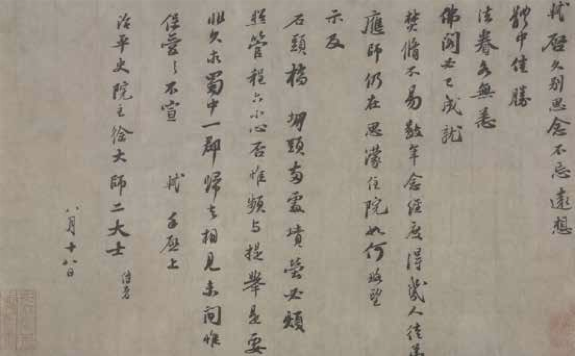 軾啓久别思念不忘遠想
體中佳勝
法眷各無恙
佛閣必已成就
焚脩不易數年念經度得幾人徒弟
應師仍在思濛住院如何略望
示及
石頭橋堋頭兩處墳塋必煩
照管程六小心否惟頻與提舉是要
非久求蜀中一郡歸去相見未間惟
保愛之不宣　軾手啓上
治平史院主徐大師二大士　侍者
八月十八日